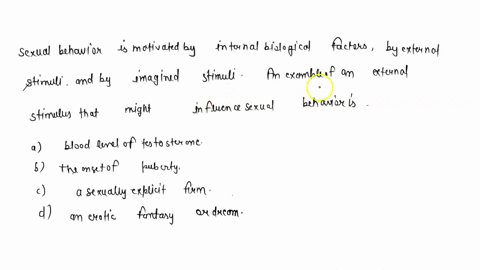 sexual behavior is motivated by internal biological factors, by external
stimuli, and by imagined stimuli. An example of an external
stimulus that might influence sexual behavior is.
a) blood level of testosterone.
b) the onset of puberty.
c) a sexually explicit firm.
d) an erotic fantasy or dream.